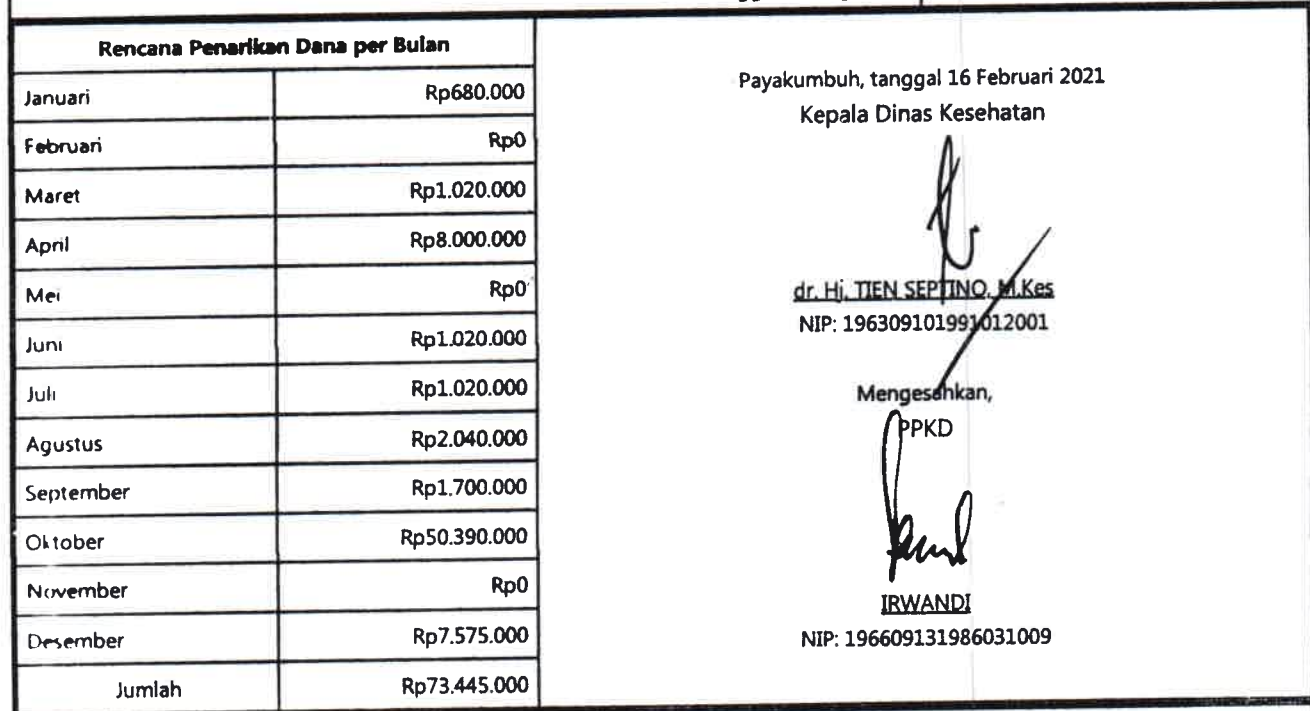 Rencana Penarikan Dana per Bulan
Januari Rp680.000
Februari Rp0
Maret Rp1.020.000
April Rp8.000.000
Mei Rp0
Juni Rp1.020.000
Juli Rp1.020.000
Agustus Rp2.040.000
September Rp1.700.000
Oktober Rp50.390.000
November Rp0
Desember Rp7.575.000
Jumlah Rp73.445.000
Payakumbuh, tanggal 16 Februari 2021
Kepala Dinas Kesehatan
dr. Hj. TIEN SEPTINO, M.Kes
NIP: 196309101991012001
Mengesahkan,
PPKD
IRWANDI
NIP: 196609131986031009